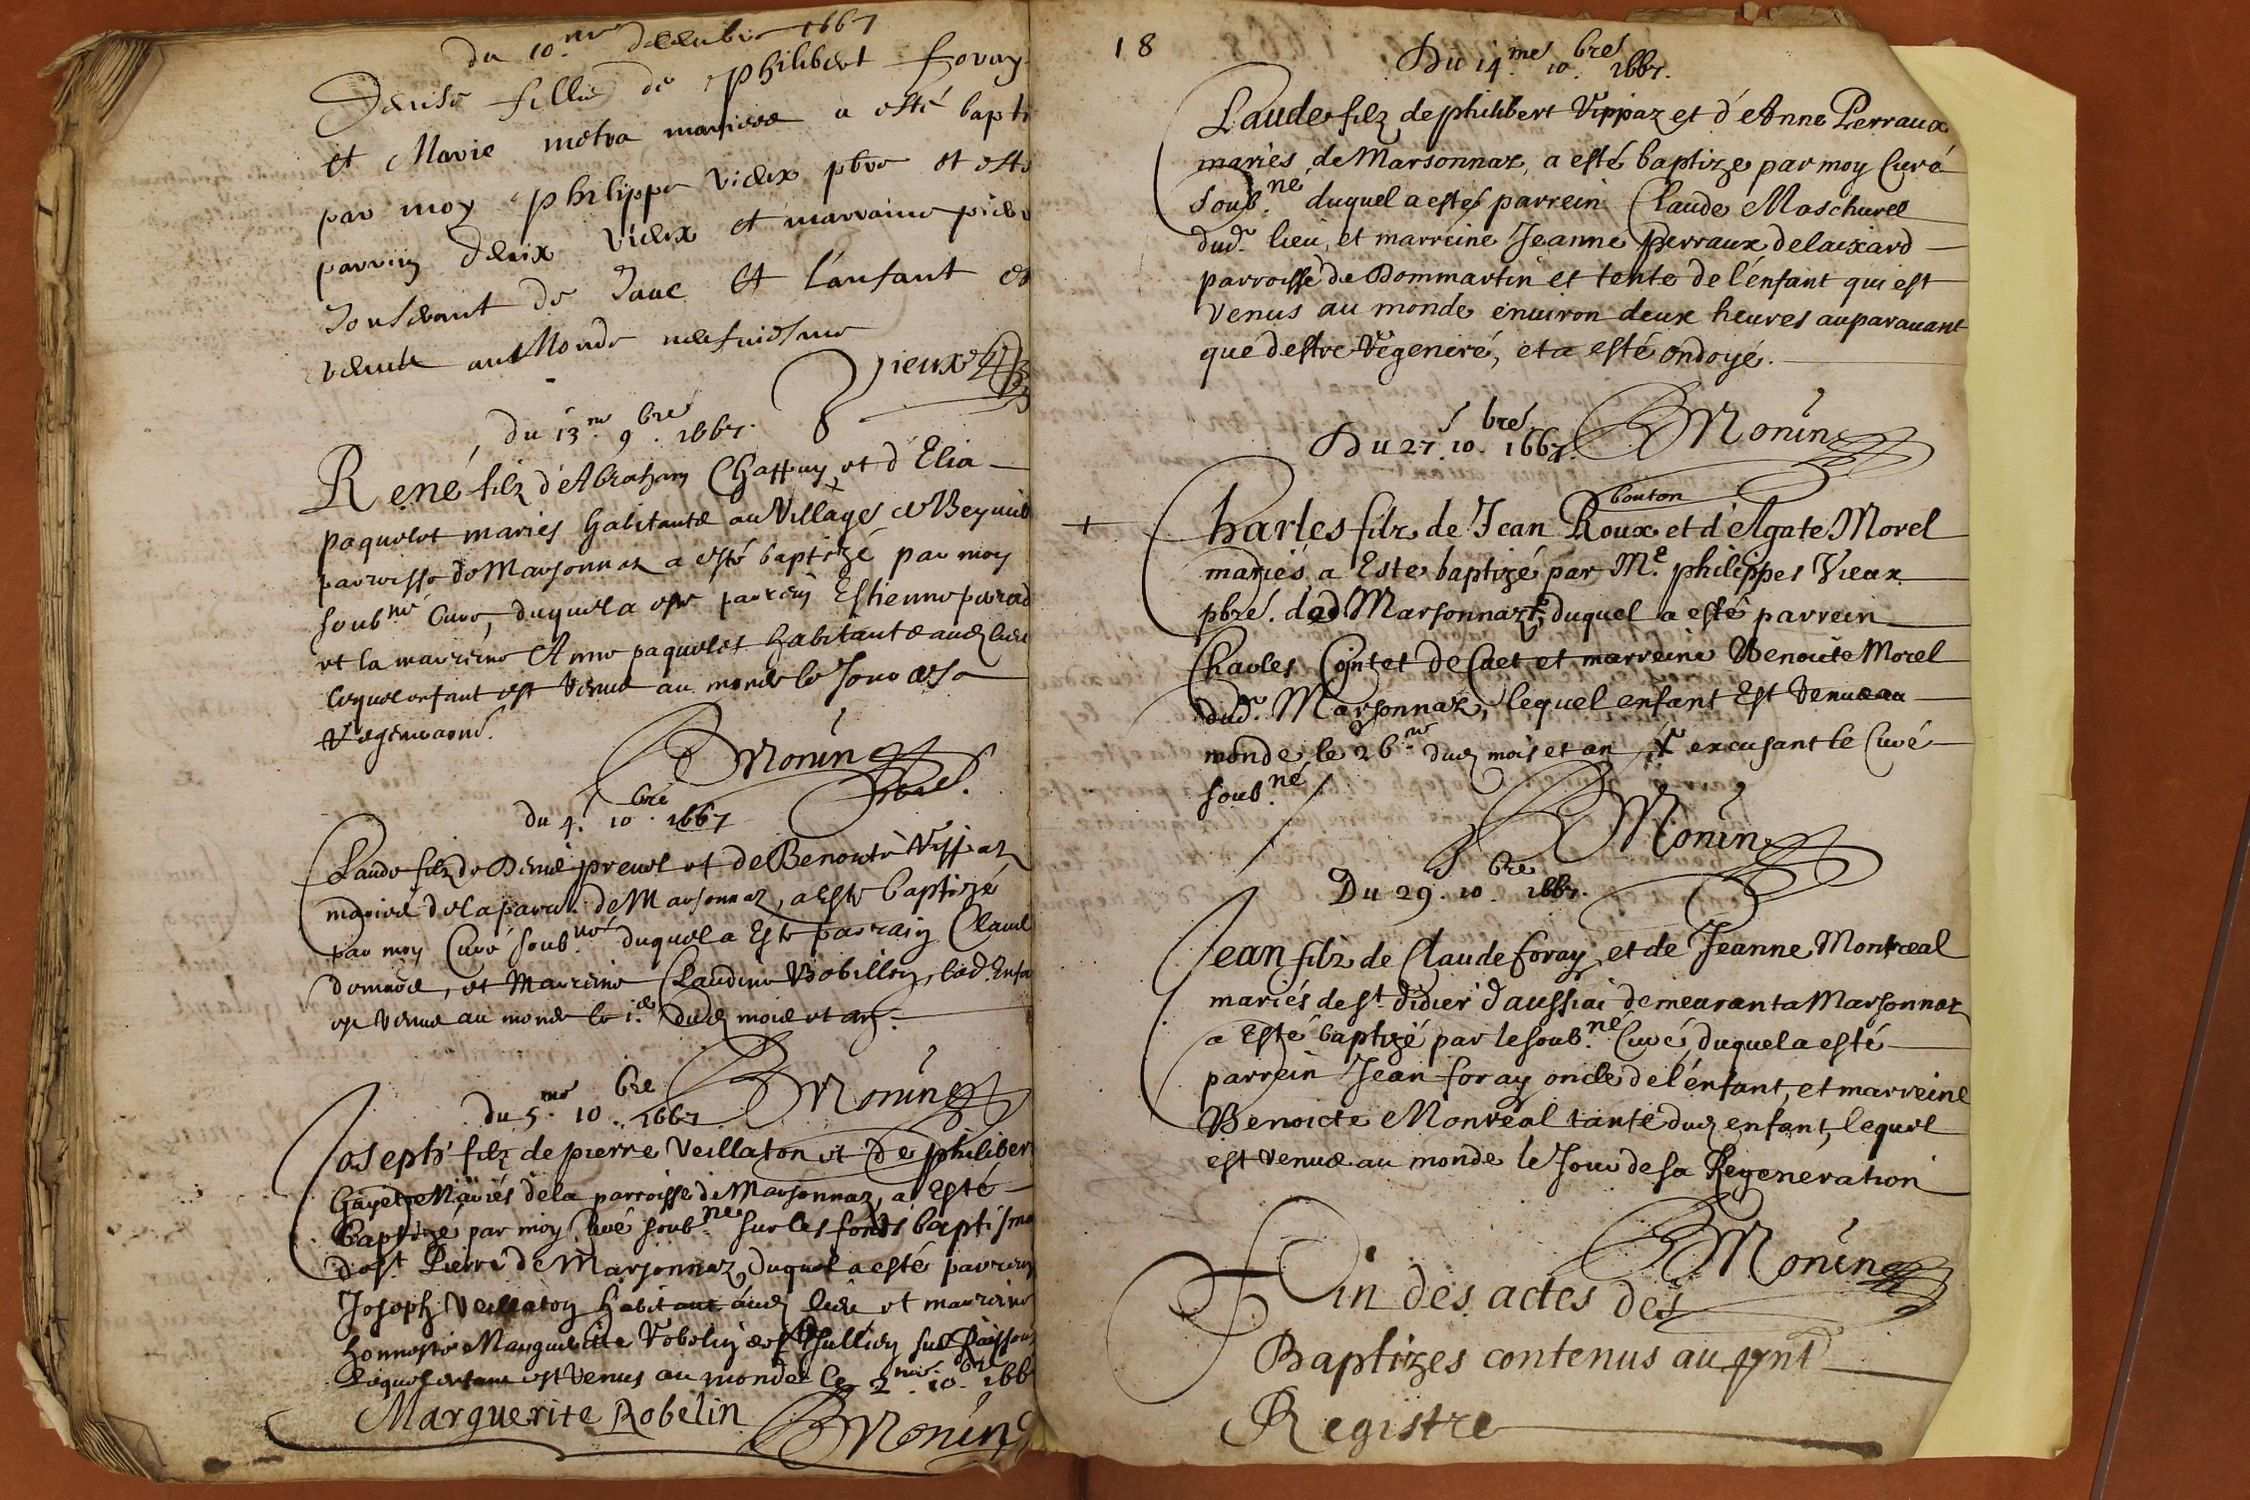 du 10.me decembre 1667
Denise fille de philibert foray
et Marie metra mariees a esté bapti
par moy philippe vieux pbre et este
parrin denix vieux et marraine
de et l'enfant es
venue au Monde
Vieux
du 13.me 9.bre 1667.
René filz d'Abraham Chaffuy et d'Elia
paquelet mariés habitants au Village de
parroisse de Marsonnaz a esté baptizé par moy
soub.né Curé, duquel a esté parrein Estienne
et la marreine Anne paquelet habitante aud. lieu
lequel enfant est venue au monde le Jour de sa
Regeneraōn.
Monin
du 4. 10.bre 1667
Claude filz de Denis prevel et de Benoite Vippaz
mariés de la parr. de Marsonnaz, a Esté baptizé
par moy Curé soub.né duquel a Esté parrain Claude
, et Marreine Claudine Bobillon, led. Enfa
est venue au monde le 1.er dud. mois et an.
Monin
du 5.me 10.bre 1667
Joseph filz de pierre Veillaton et de philiber
Gayet Mariés de la parroisse de Marsonnaz, a Esté
Baptizé par moy Curé soub.né sur les fonts baptisma
de St. Pierre de Marsonnaz, duquel a esté parrein
Joseph Veillaton habitant aud. lieu et marreine
honneste Marguerite Robelin de St. Jullien sur
Lequel enfant est venus au monde le 2.me 10.bre 166
Marguerite Robelin Monin
18
Du 14.me 10.bre 1667.
Claude filz de philibert Vippaz et d'Anne Perraux
mariés de Marsonnaz, a esté baptize par moy Curé
Soub.né duquel a estés parrein Claude Maschurel
dud. lieu, et marreine Jeanne perraux
parroisse de Dommartin et tente de l'énfant qui est
venus au monde énuiron deux heures auparauant
qué d'estre Regeneré, et a esté ondoyé.
Monin
Du 27. 10.bre 1667.
bouton
+ Charles filz de Jean Roux et d'Agate Morel
mariés a Este baptizé par M.e philippes Vieux
pbre. dud. Marsonnaz, duquel a esté parrein
Charles Cointet de Cuet et marreine Benoite Morel
dud. Marsonnaz, lequel enfant Est venue au
monde le 26.me dud. mois et an excusant le Curé
soub.né
Monin
Du 29. 10.bre 1667.
Jean filz de Claude foray et de Jeanne Montreal
mariés de St. didier d'aussiai demeurant a Marsonnaz
a Esté baptizé par le soub.né Curé, duquel a esté
parrein Jean foray oncle de l'énfant, et marreine
Benoicte Monreal tante dud. enfant, lequel
est venue au monde le Jour de sa Regeneration
Monin
Fin des actes des
Baptizes contenus au pnt
Registre